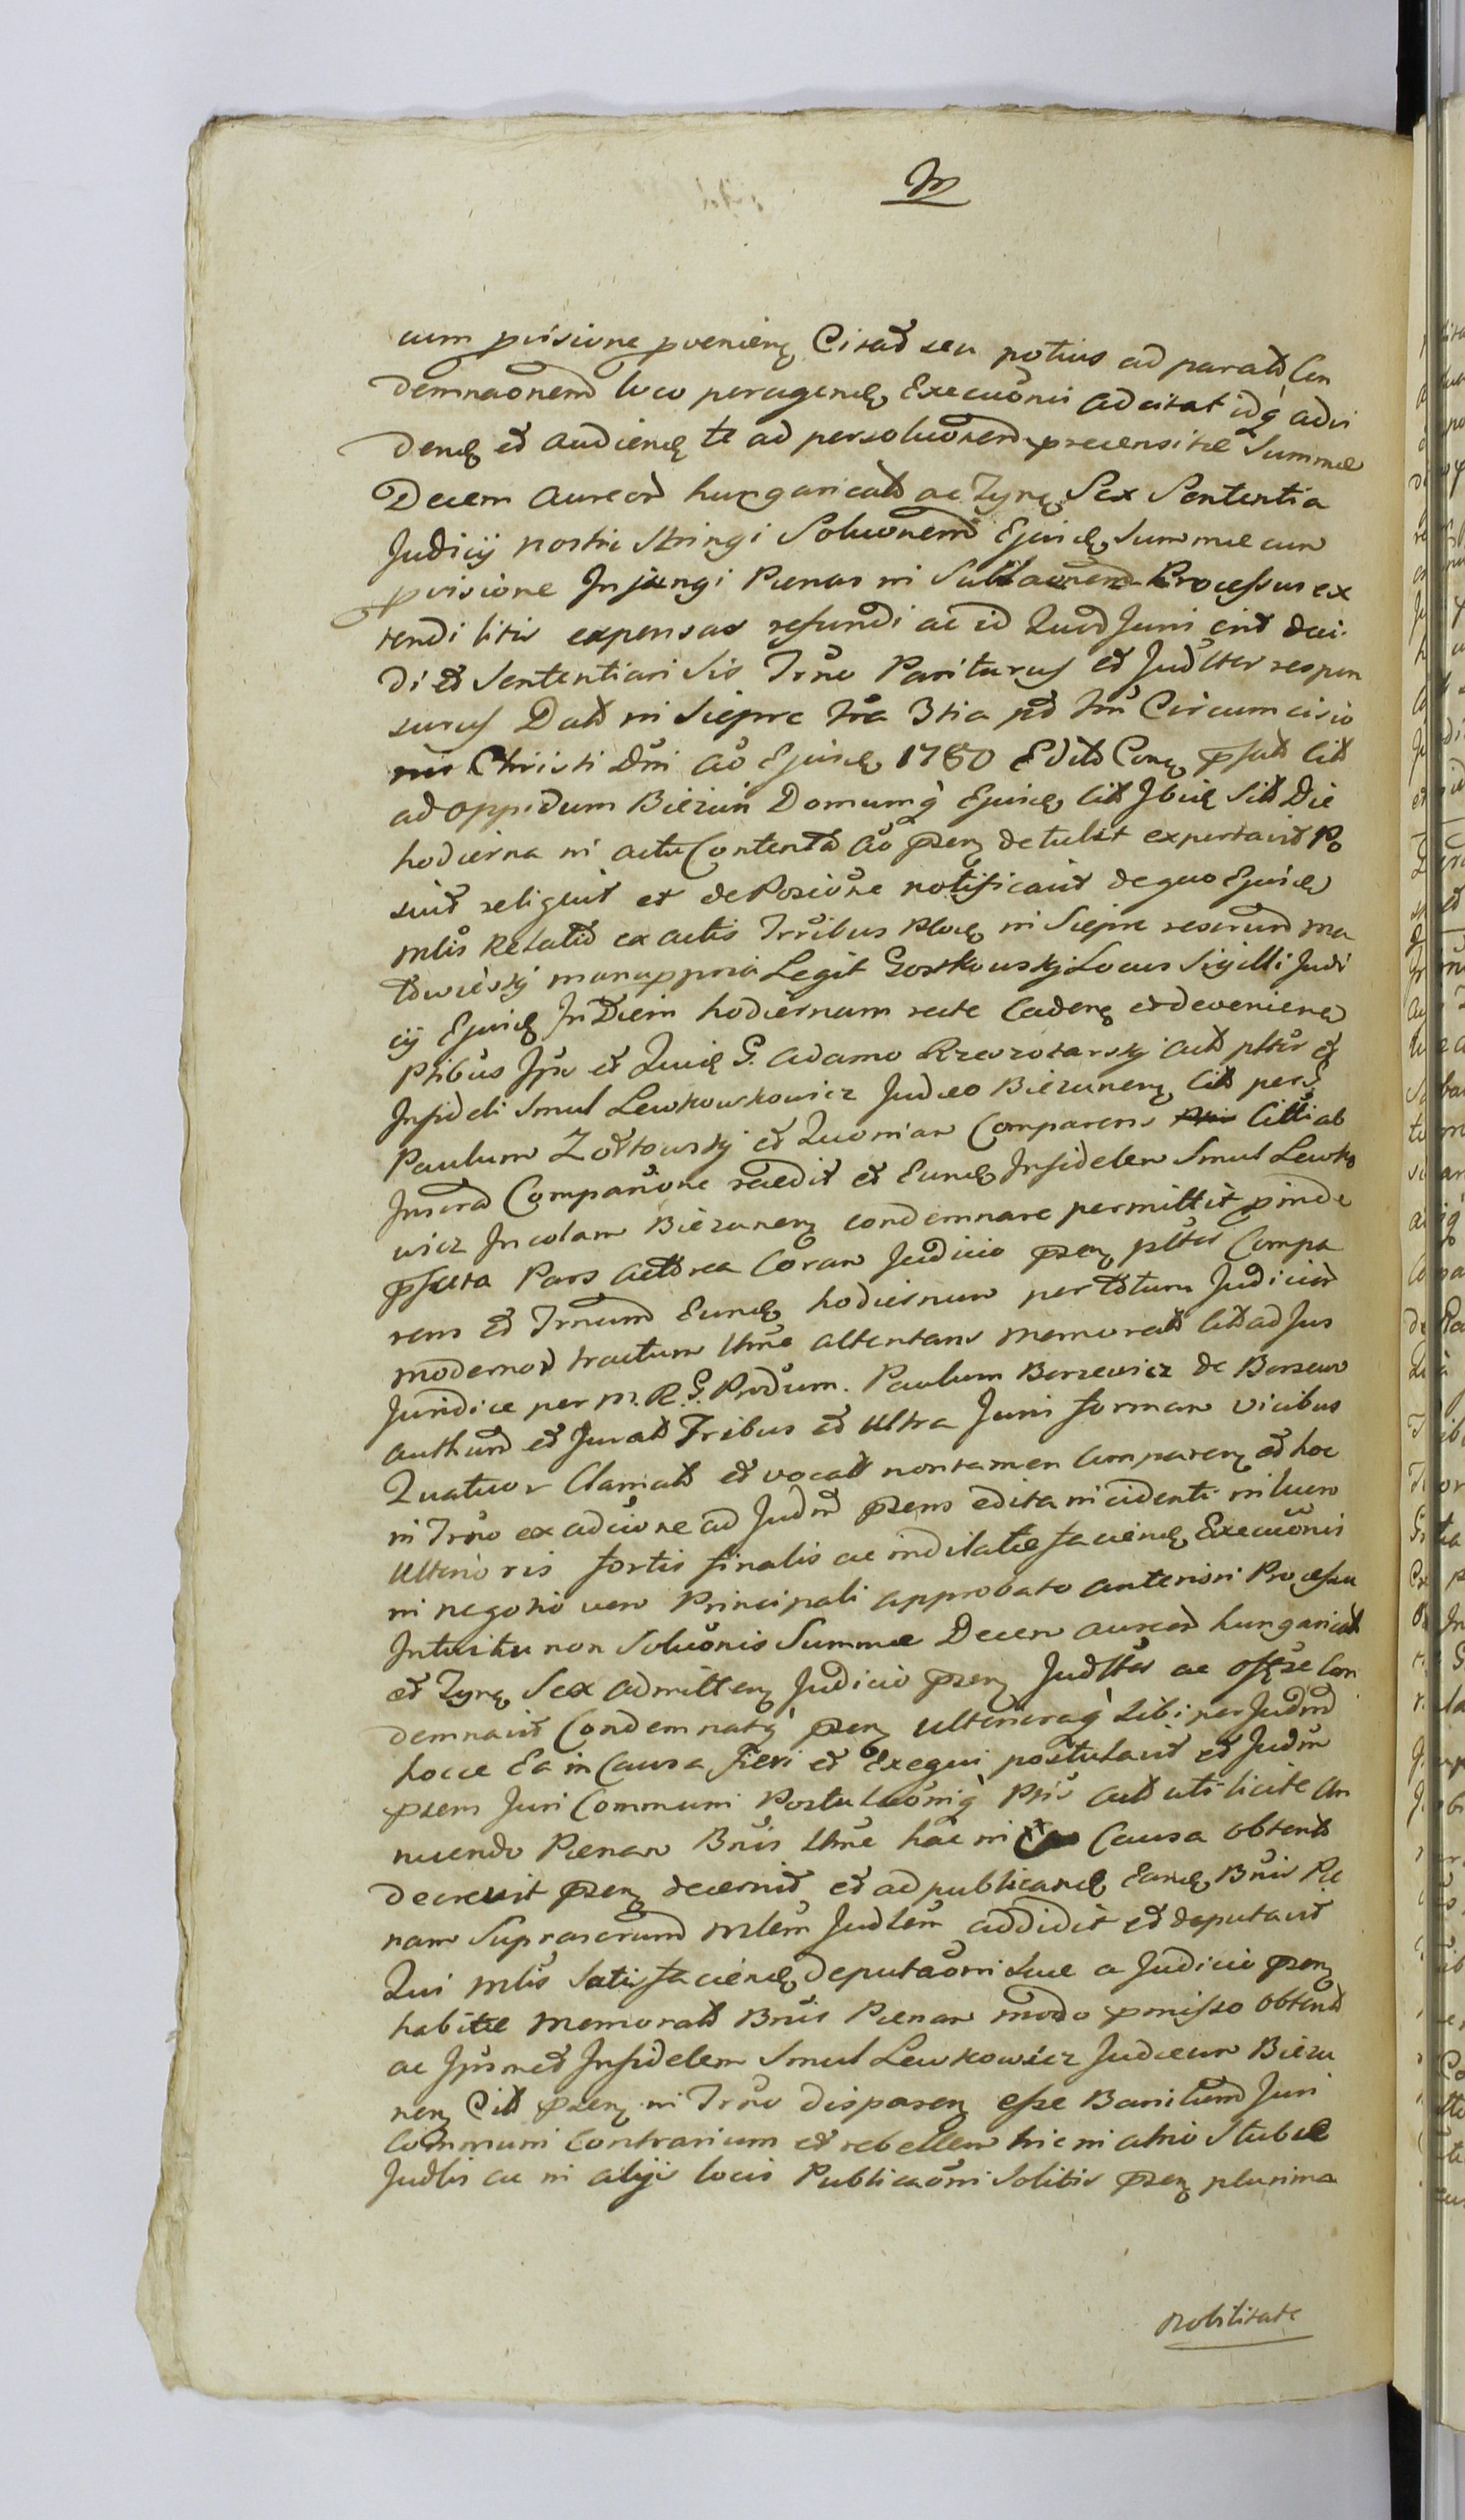 M
cum provisione provenien Citat seu potius ad parat Con
demnaonem loco peragend Execuonis adcitat idq ad vi
dend et audiend te ad persolvonem praecensitae Summae
Decem aureor hungarical ac Tynf Sex Sententia
Judicij nostri Stringi Soluonem Ejusd Summae cum
provisione Injungi Paenas in Process ex
tendi litis expensas refundi ac id Quod Juris erit deci
di et Sententiari Sis Trno Pariturus et Judlter respon
surus Dat in Sieprc fra 3tia pt fm Circumcisio
nis Christi Dni Ao Ejusd 1780 Edit Con psat Cit
ad oppidum Biezun Domumq Ejusd Cit Ibid Sit Die
hodierna in actu Content Ao prsen detulit exportavit Po
suit reliquit et de Posiône notificavit de quo Ejusd
mlis Relatio ex actis Trribus Plocen in Sieprc reserand
manuppria Legit Gostkowskj Locus Sigilli Judi
cij Ejusd In Diem hodiernam recte Caden et deveniend
Ptibus Ipsi et Quid G. Adamo Rzeszotarskj act pltér et
Infideli Smul Lewkowkowicz Judaeo Biezunen Cit per G
Paulum Zołtowskj et Quoniam Comparens Citti ab
Inserd Comparône recedit et Eund Infidelem Smul Lewko
wicz Incolam Biezunen condemnare permittit proinde
psata Pars actorea Coram Judicio prsen pltér Compa
rens et Trnum Eund hodiernum per totum Judicior
modernor tractum ltme attentans memorat Cit ad Jus
Juridice per M. R. G. Produm. Paulum Borzewicz de Borzewo
authum et Jurat Tribus et ultra Juris formam vicibus
Quatuor Clamat et vocat non tamen comparen et hoc
in Trno ex adcione ad Judm prsens edita incidenti in lucro
ulterioris fortis finalis ac indilatae faciend Execuônis
in negotio vero Principali approbato anteriori Processu
Intuitu non Soluônis Summae Decem aureor hungarical
et Tynf Sex admitten Judicio prsen Judlter ac Con
demnavit Condemnatq prsen ulterioraq Sibi per Judm
hocce Ea in Causa fieri et Exequi postulavit et Judm
prsens Juri Communi Postulaônq Ptis act uti licite An
nuendo Paenam Bnis ltme hac in Causa obtent
decrevit prsen decernit et ad publicand Eand Bnis Pae
nam Suprascrum mlem Judlem addidit et deputavit
Qui mlis Satisfaciend deputaôni Suae a Judicio prsen
habitae memorat Bnis Paenam modo pmisso obtent
ac Ipsmet Infidelem Smul Lewkowicz Judaeum Biezu
nen Cit prsen in Trno disparen esse Banitum Juri
Communi Contrarium et rebellem hic in atrio Stubae
Judlis ac in alijs locis Publicaôni Solitis prsen plurima
nobilitate